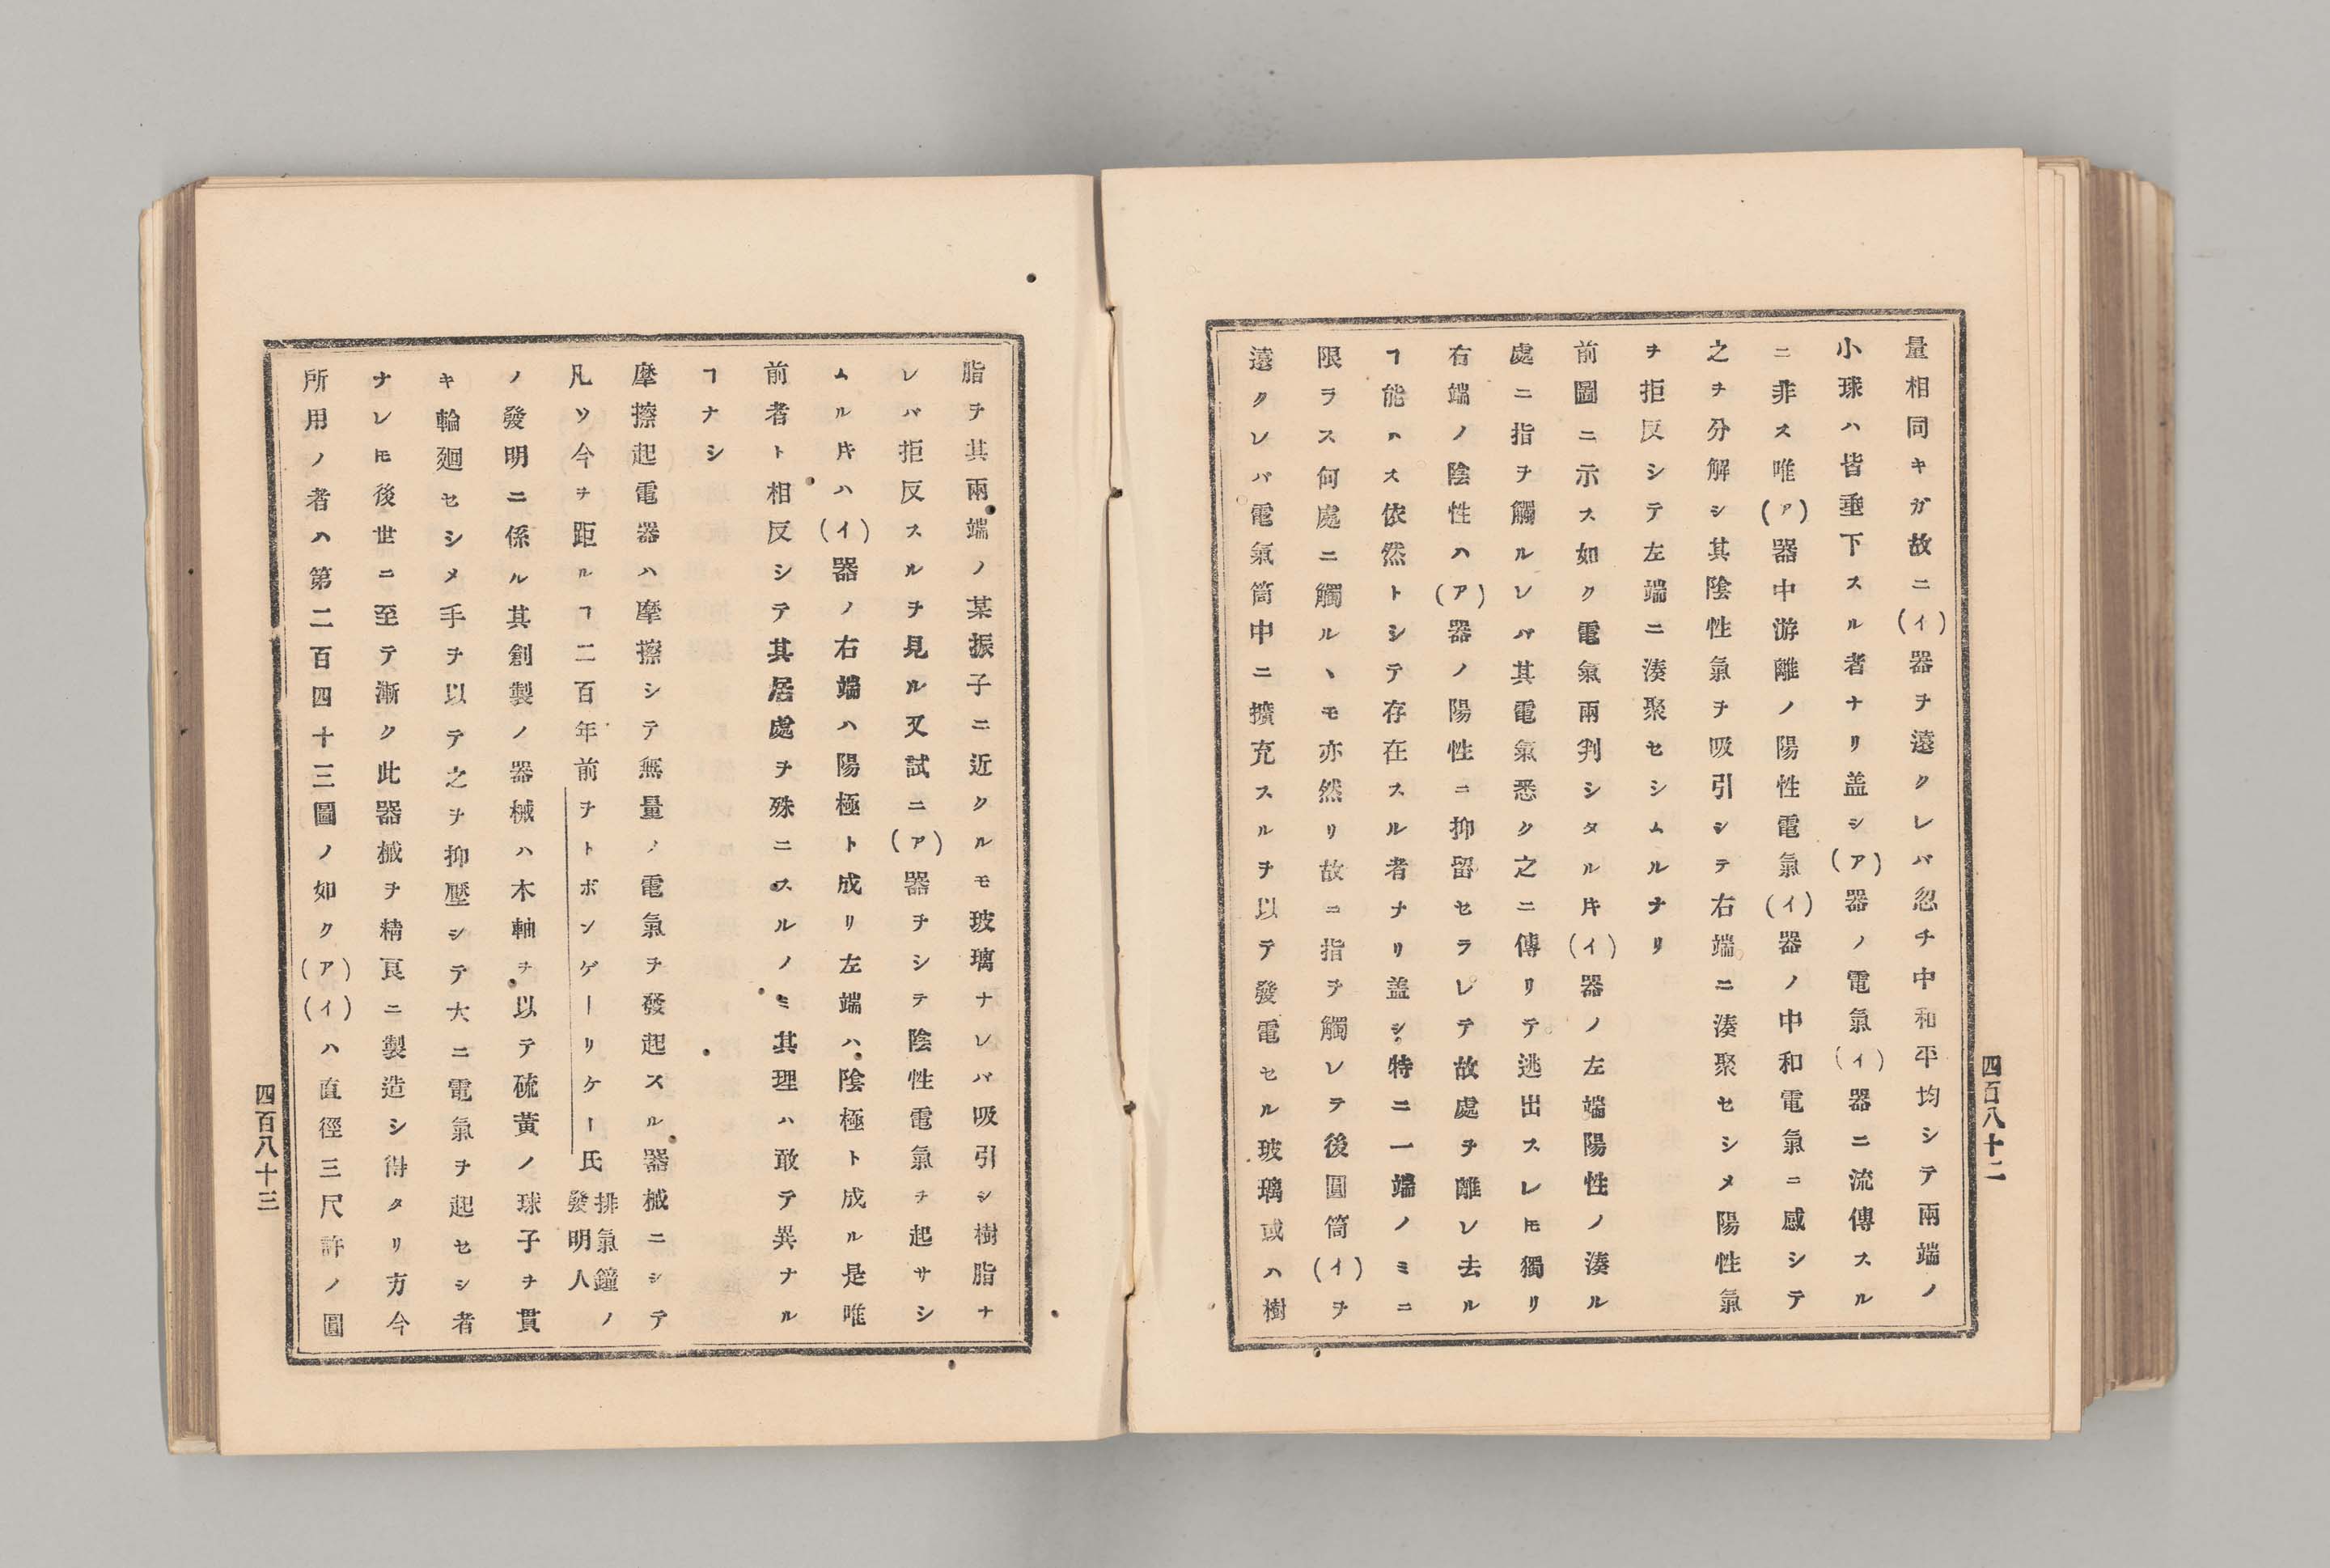 量相同キガ故ニ(イ)器ヲ遠クレバ忽チ中和平均シテ兩端ノ
小球ハ皆垂下スル者ナリ盖シ(ア)器ノ電氣(イ)器ニ流傳スル
ニ非ス唯(ア)器中游離ノ陽性電氣(イ)器ノ中和電氣ニ感シテ
之ヲ分解シ其陰性氣ヲ吸引シテ右端ニ湊聚セシメ陽性氣
ヲ拒反シテ左端ニ湊聚セシムルナリ
前圖ニ示ス如ク電氣兩判シタル𪜈(イ)器ノ左端陽性ノ湊ル
處ニ指ヲ觸ルレバ其電氣悉ク之ニ傳リテ逃出スレ𪜈獨リ
有端ノ陰性ハ(ア)器ノ陽性ニ抑留セラレテ故處ヲ離レ去ル
ヿ能ハス依然トシテ存在スル者ナリ盖シ特ニ一端ノミニ
限ラス何處ニ觸ルヽモ亦然リ故ニ指ヲ觸レテ後圓筒(イ)ヲ
遠クレバ電氣筒中ニ擴充スルヲ以テ發電セル玻璃或ハ樹
四百八十二
脂ヲ其兩端ノ某振子ニ近クルモ玻璃ナレバ吸引シ樹脂ナ
レバ拒反スルヲ見ル又試ニ(ア)器ヲシテ陰性電氣ヲ起サシ
ムル𪜈ハ(イ)器ノ右端ハ陽極ト成リ左端ハ陰極ト成ル是唯
前者ト相反シテ其居處ヲ殊ニスルノミ其理ハ敢テ異ナル
ヿナシ
摩擦起電器ハ摩擦シテ無量ノ電氣ヲ發起スル器械ニシテ
凡ソ今ヲ距ルヿ二百年前ヲトボンゲーリケー氏排氣鐘ノ發明人
ノ發明ニ係ル其創製ノ器械ハ木軸ヲ以テ硫黃ノ球子ヲ貫
キ輪廻セシメ手ヲ以テ之ヲ抑壓シテ大ニ電氣ヲ起セシ者
ナレ𪜈後世ニ至テ漸ク此器械ヲ精良ニ製造シ得タリ方今
所用ノ者ハ第二百四十三圖ノ如ク(ア)(イ)ハ直徑三尺許ノ圓
四百八十三